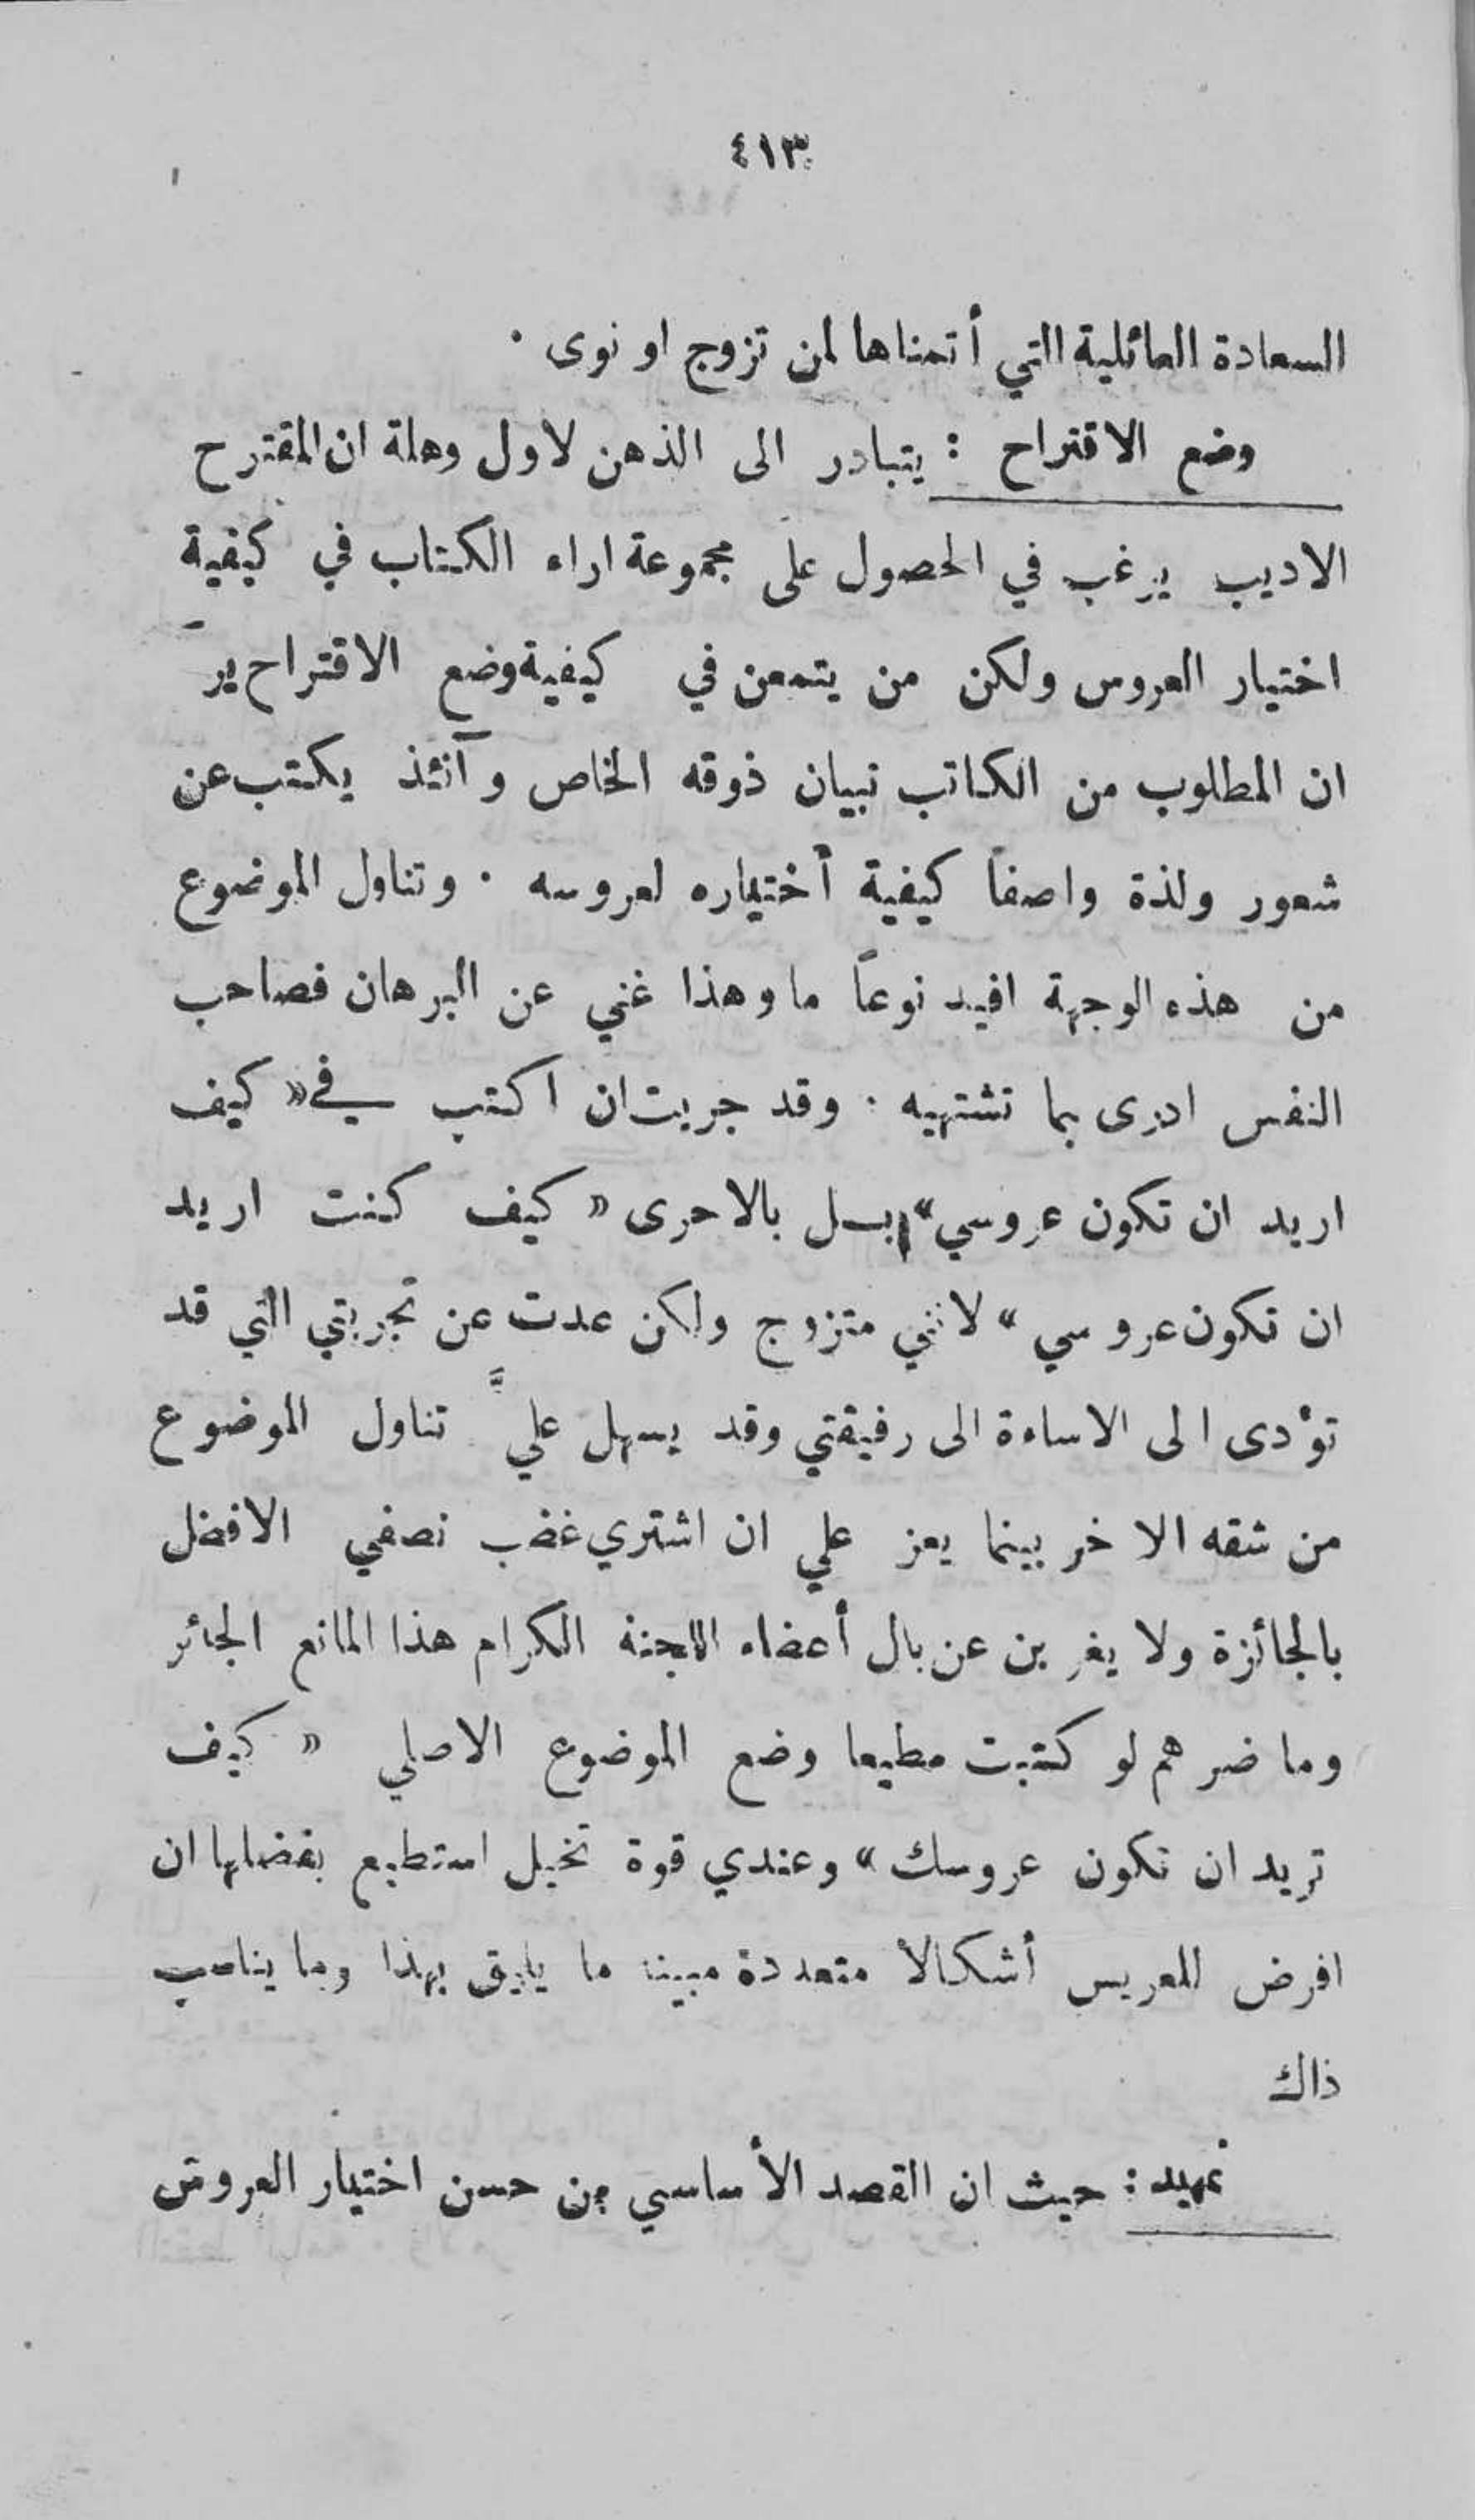 ٤١٣
السعادة العائلية التي أتمناها لمن تزوج او نوى .
وضع الاقتراح : يتبادر الى الذهن لاول وهلة ان المقترح
الاديب يرغب في الحصول على مجموعة اراء الكتاب في كيفية
اختيار العروس ولكن من يتمعن في كيفية وضع الاقتراح يرَ
ان المطلوب من الكاتب تبيان ذوقه الخاص وآنئذ يكتب عن
شعور ولذة واصفاً كيفية أختياره لعروسه . وتناول الموضوع
من هذه الوجهة افيد نوعاً ما وهذا غني عن البرهان فصاحب
النفس ادرى بما تشتهيه . وقد جربت ان اكتب في « كيف
اريد ان تكون عروسي » بل بالاحرى « كيف كنت اريد
ان تكون عروسي » لانني متزوج ولكن عدت عن تجربتي التي قد
تؤدى الى الاساءة الى رفيقتي وقد يسهل عليَّ تناول الموضوع
من شقه الاخر بينما يعز علي ان اشتري غضب نصفي الافضل
بالجائزة ولا يغربن عن بال أعضاء اللجنة الكرام هذا المانع الجائر
وما ضرهم لو كتبت مطيعا وضع الموضوع الاصلي « كيف
تريد ان تكون عروسك » وعندي قوة تخيل استطيع بفضلها ان
افرض للعريس أشكالا متعددة مبينا ما يليق بهذا وما يناسب
ذاك
تمهيد : حيث ان القصد الأساسي من حسن اختيار العروس